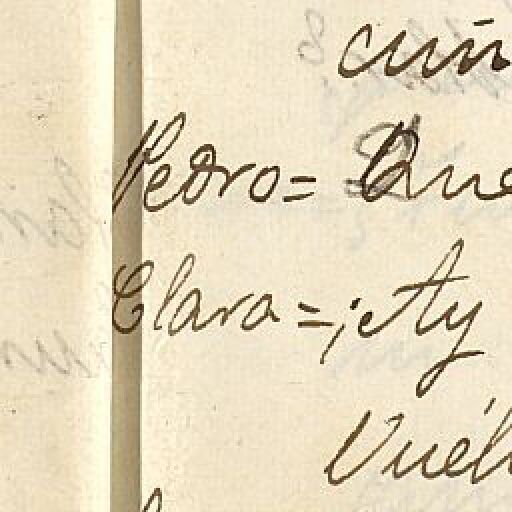 cuñ
Pedro= Que
Clara=¡Ay
Vuél